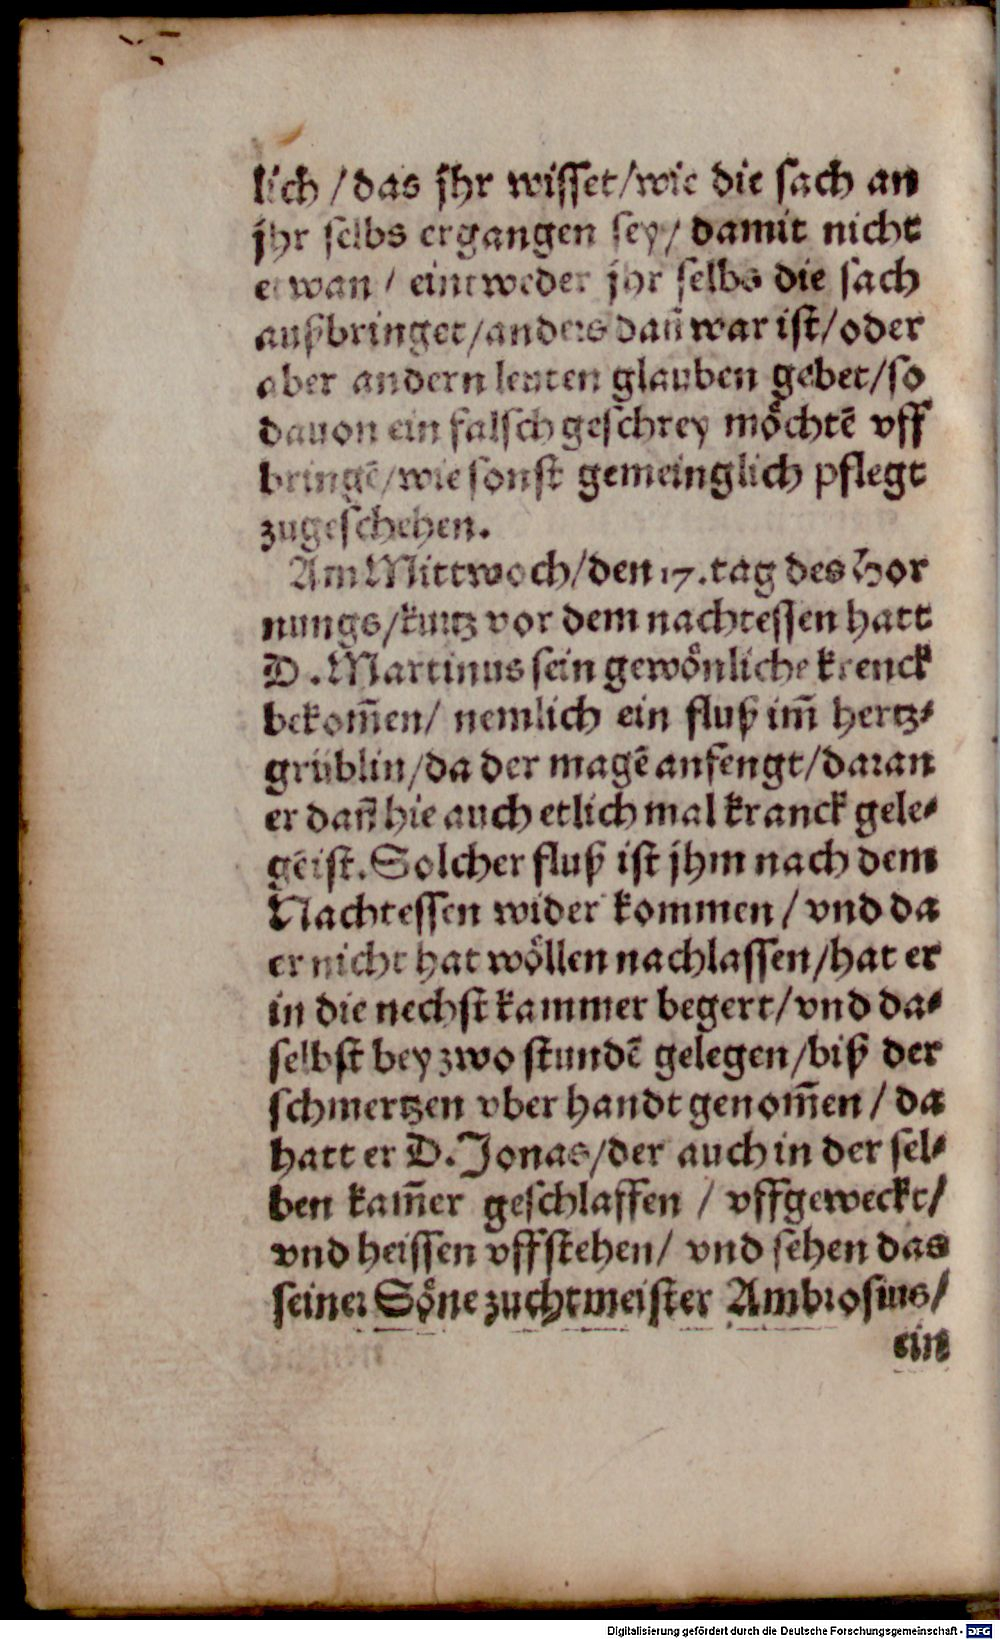 lich / das jhr wisset/wie die sach an
jhr selbs ergangen sey/ damit nicht
etwan / eintweder jhr selbs die sach
außbringet/anders dañ war ist/oder
aber andern leuten glauben gebet/so
dauon ein falsch geschrey möchtē vff
bringē/wie sonst gemeinglich pflegt
zugeschehen.
Am Mittwoch/den 17.tag des Hor
nungs/kurtz vor dem nachtessen hatt
D.Martinus sein gewönliche krenck
bekom̃en/ nemlich ein fluß im̃ hertz-
grüblin/da der magē anfengt/daran
er dañ hie auch etlich mal kranck gele-
gē ist.Solcher fluß ist jhm nach dem
Nachtessen wider kommen/vnd da
er nicht hat wöllen nachlassen/hat er
in die nechst kammer begert/vnd da-
selbst bey zwo stundē gelegen/biß der
schmertzen vber handt genom̃en/da
hatt er D.Jonas/der auch in der sel-
ben kam̃er geschlaffen / vffgeweckt/
vnd heissen vffstehen/ vnd sehen das
seiner Söne zuchtmeister Ambrosius/
ein
Digitalisierung gefördert durch die Deutsche Forschungsgemeinschaft - DFG